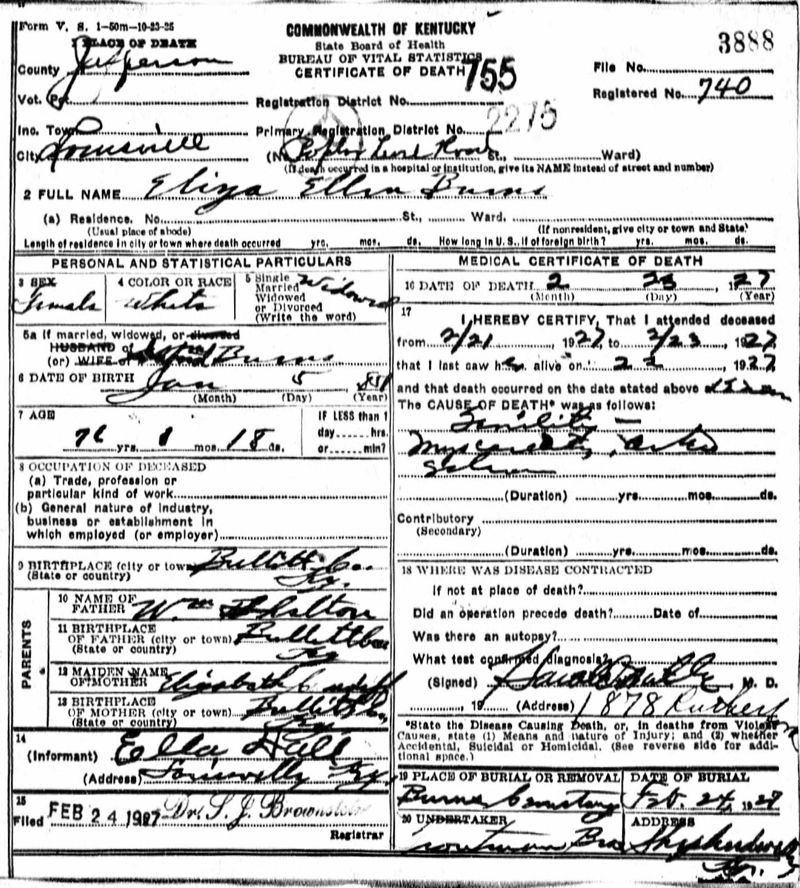 Form V. S. 1—50m—10-23-25
COMMONWEALTH OF KENTUCKY
State Board of Health
BUREAU OF VITAL STATISTICS
CERTIFICATE OF DEATH 755
3888
1 PLACE OF DEATH
County Jefferson
File No.
Vot. Pct.
Registration District No.
Registered No. 740
Inc. Town
Primary Registration District No. 2275
City Louisville (No. Poplar Level Road St., Ward)
(If death occurred in a hospital or institution, give its NAME instead of street and number)
2 FULL NAME Eliza Ellen Burns
(a) Residence. No. St., Ward.
(Usual place of abode) (If nonresident, give city or town and State)
Length of residence in city or town where death occurred yrs. mos. ds. How long in U. S., if of foreign birth? yrs. mos. ds.
PERSONAL AND STATISTICAL PARTICULARS
3 SEX Female
4 COLOR OR RACE White
5 Single Married Widowed or Divorced (Write the word) Widowed
5a If married, widowed, or divorced
HUSBAND of
(or) WIFE of Burns
6 DATE OF BIRTH Jan 5
(Month) (Day) (Year)
7 AGE 76 yrs. mos. 18 ds.
IF LESS than 1 day hrs. or min?
8 OCCUPATION OF DECEASED
(a) Trade, profession or particular kind of work
(b) General nature of industry, business or establishment in which employed (or employer)
9 BIRTHPLACE (city or town) Bullitt Co.
(State or country) Ky.
PARENTS
10 NAME OF FATHER Wm Shelton
11 BIRTHPLACE OF FATHER (city or town) Bullitt Co
(State or country) Ky
12 MAIDEN NAME OF MOTHER Elizabeth
13 BIRTHPLACE OF MOTHER (city or town) Bullitt Co
(State or country) Ky
14
(Informant) Ella Hall
(Address) Louisville Ky.
15
Filed FEB 24 1927 Dr. S. J. Brownstein
Registrar
MEDICAL CERTIFICATE OF DEATH
16 DATE OF DEATH 2 23, 1927
(Month) (Day) (Year)
17
I HEREBY CERTIFY, That I attended deceased
from 2/21, 1927 to 2/23, 1927
that I last saw her alive on 22, 1927
and that death occurred on the date stated above
The CAUSE OF DEATH* was as follows:
Senility —
Myocarditis,
(Duration) yrs. mos. ds.
Contributory
(Secondary)
(Duration) yrs. mos. ds.
18 WHERE WAS DISEASE CONTRACTED
If not at place of death?
Did an operation precede death? Date of
Was there an autopsy?
What test confirmed diagnosis?
(Signed) M. D.
, 19 (Address) 1878
*State the Disease Causing Death, or, in deaths from Violent
Causes, state (1) Means and nature of Injury; and (2) whether
Accidental, Suicidal or Homicidal. (See reverse side for addi-
tional space.)
19 PLACE OF BURIAL OR REMOVAL Burns Cemetery
DATE OF BURIAL Feb. 24, 192
20 UNDERTAKER Troutman Bros
ADDRESS Shepherdsville Ky.